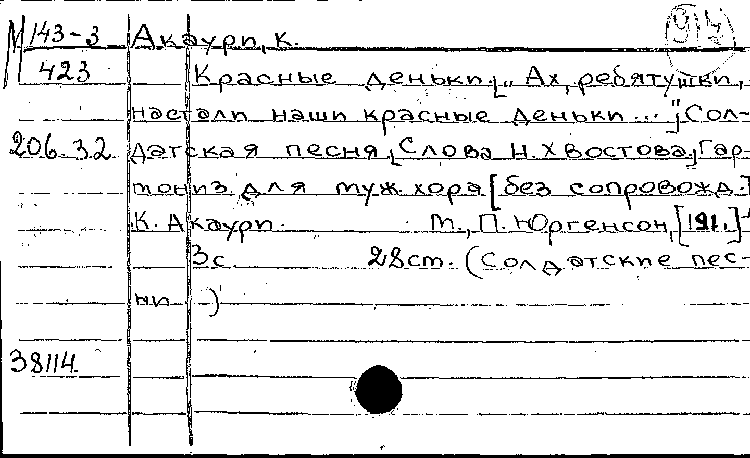 М 143-3 Акаурп, К. 94
423 Красные деньки. [„Ах, ребятушки,
настали наши красные деньки..."] Сол-
206.32 датская песня. [Слова Н. Хвостова.] Гар-
мониз. для муж. хора [без сопровожд.]
К. Акаурп. М., П. Юргенсон, [191.]
3с. 28см. (Солдатские пес-
ни )
38114